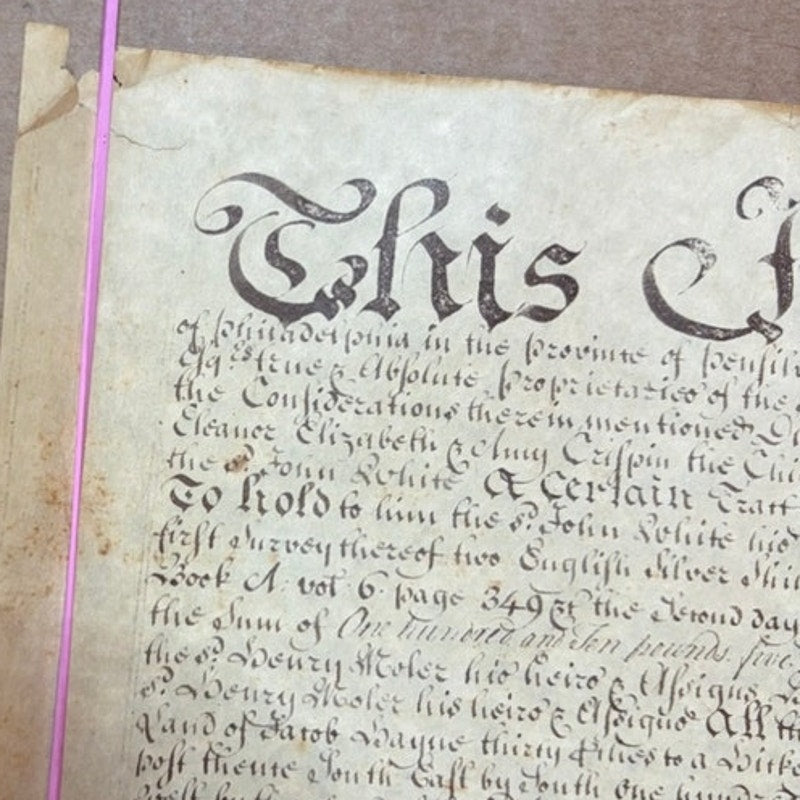 This I
of Philadelphia in the Province of Pensilv
Esqrs. true & Absolute Proprietaries of the
the Considerations therein mentioned Di
Eleanor Elizabeth & Amy Crispin the Chil
the sd. John White A Certain Tract
To hold to him the sd. John White his
first Survey thereof two English Silver Shil
Book A: vol 6. page 349 &c the Second day
the Sum of One hundred and Ten pounds five
the sd. Henry Moler his heirs & Assigns
sd. Henry Moler his heirs & Assigns All th
Land of Jacob Wayne thirty to a Hicko
post thence South East by South one hundre
West by the